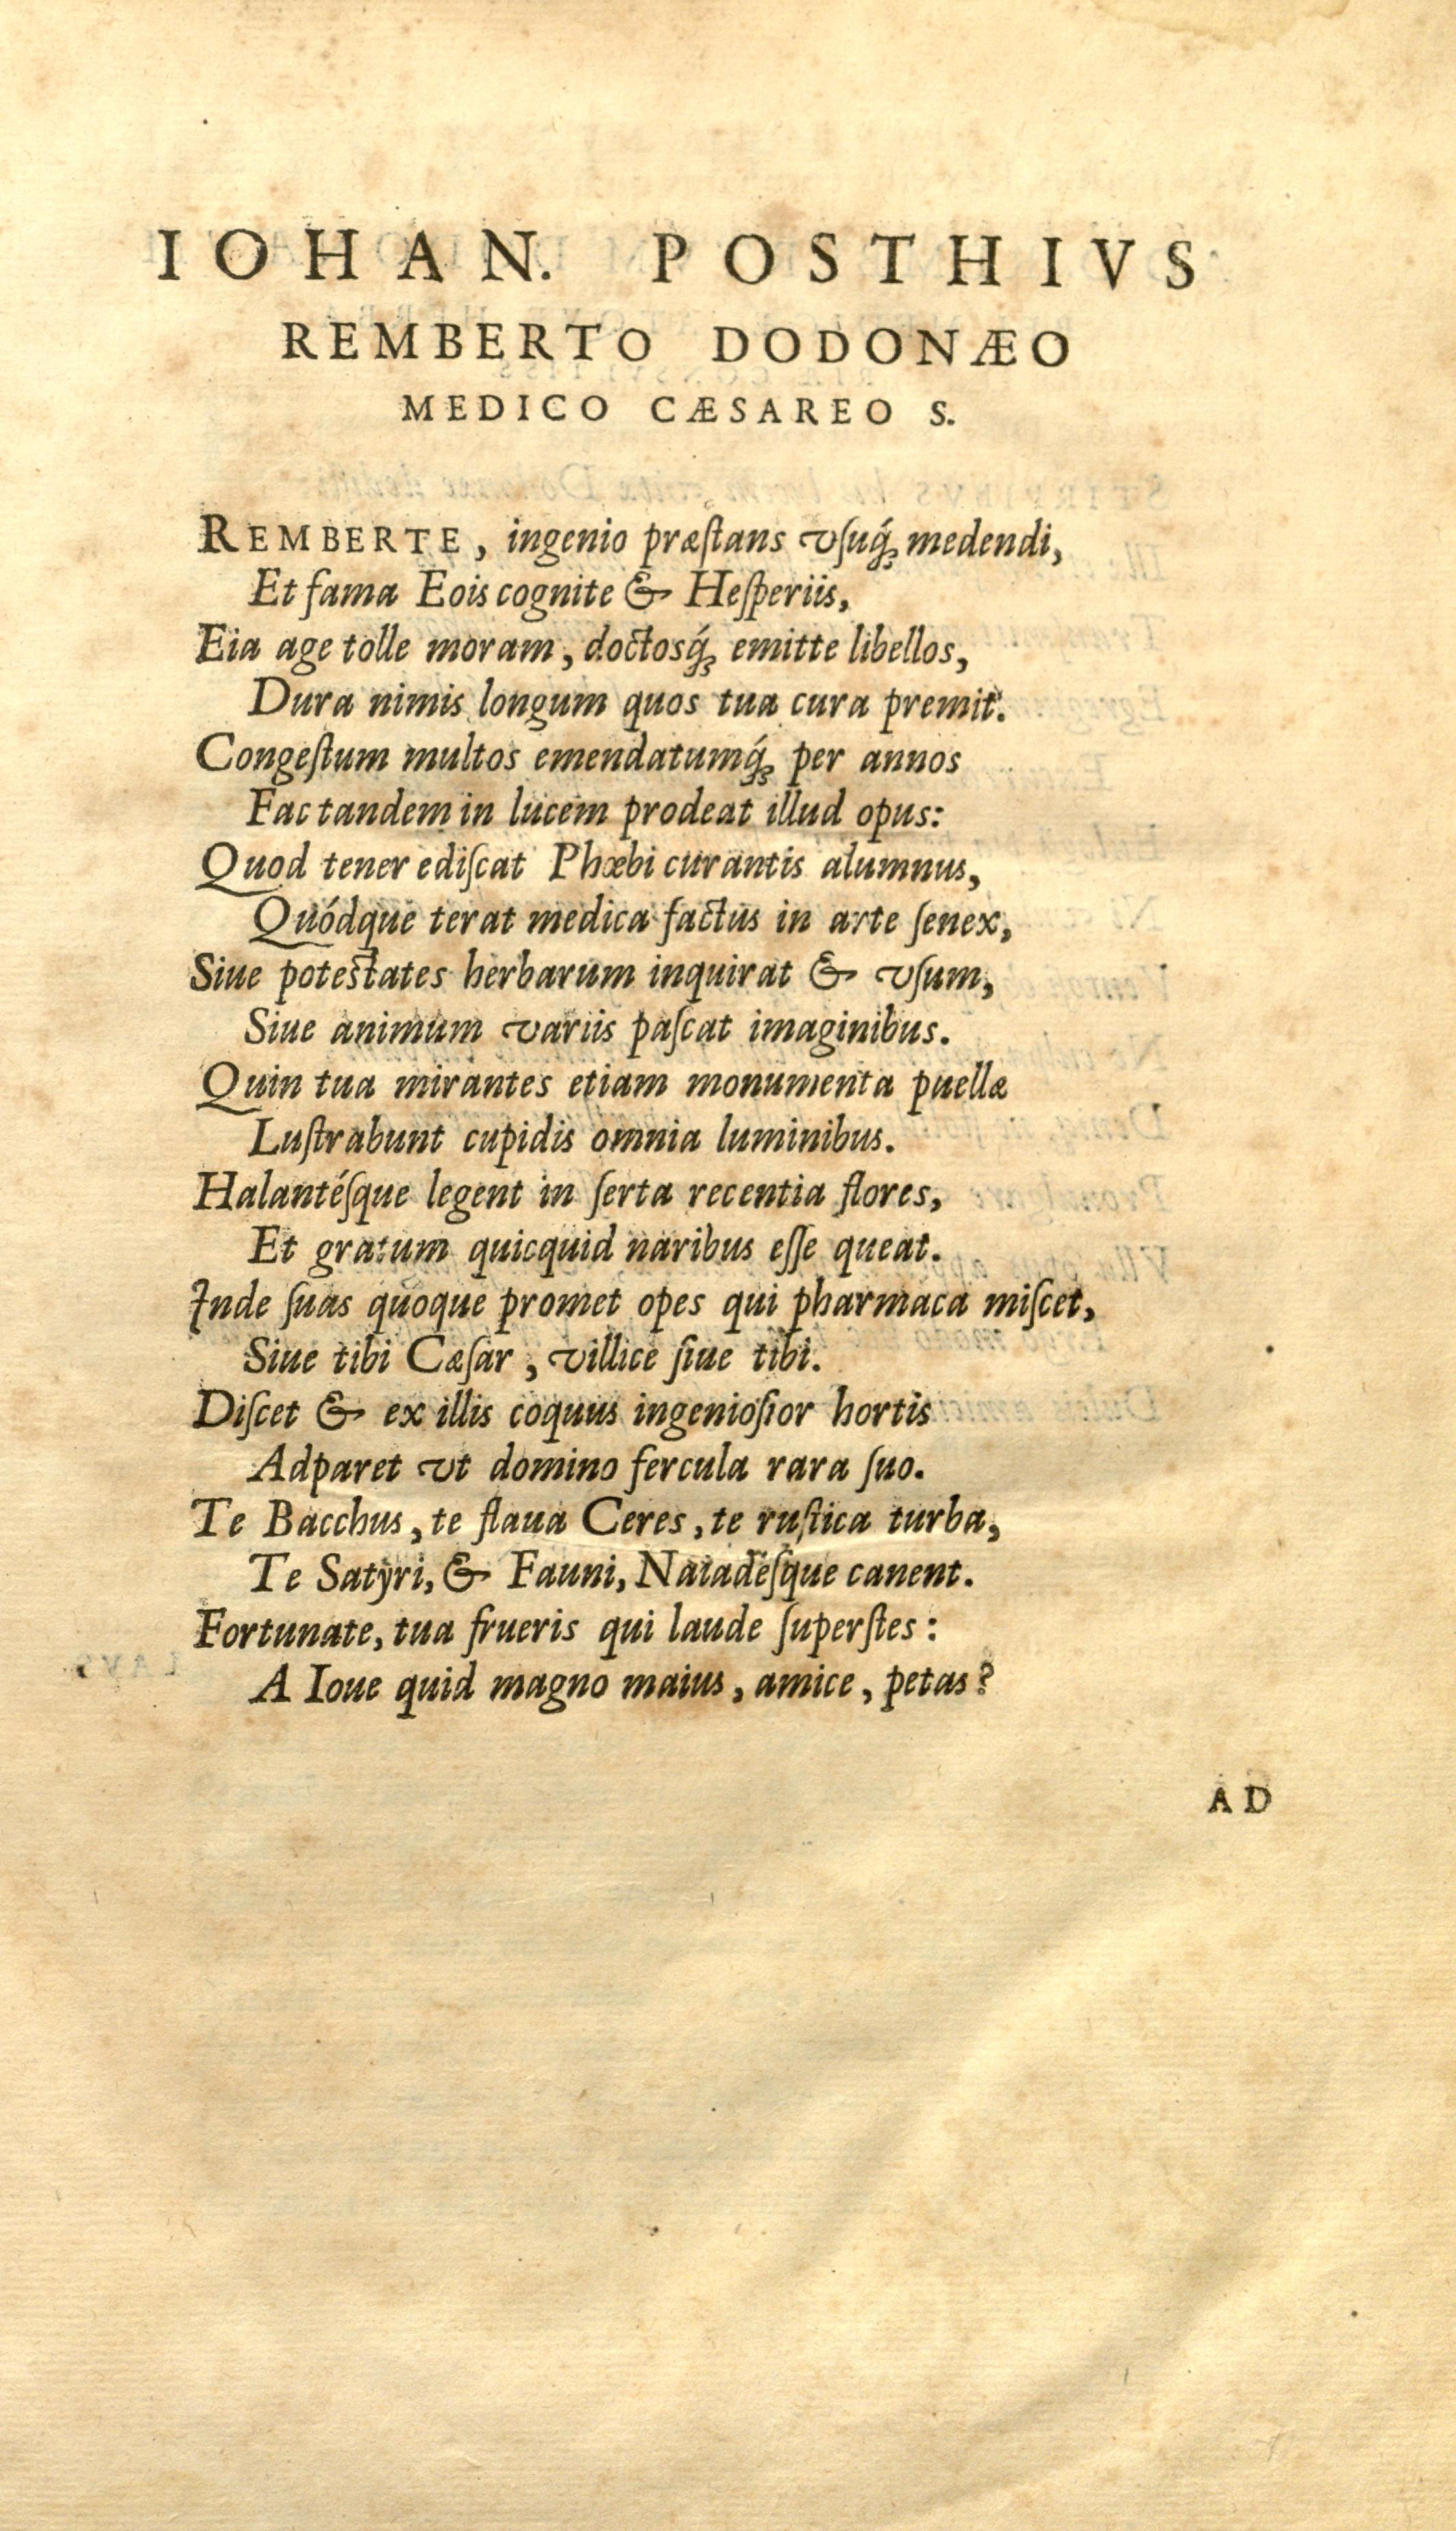 IOHAN. POSTHIVS
REMBERTO DODONÆO
MEDICO CÆSAREO S.
REMBERTE, ingenio præſtans vſuq́ꝫ medendi,
Et fama Eois cognite & Heſperiis,
Eia age tolle moram, doctosq́ꝫ emitte libellos,
Dura nimis longum quos tua cura premit.
Congeſtum multos emendatumq́ꝫ per annos
Fac tandem in lucem prodeat illud opus:
Quod tener ediſcat Phœbi curantis alumnus,
Quódque terat medica factus in arte ſenex,
Siue poteſtates herbarum inquirat & vſum,
Siue animum variis paſcat imaginibus.
Quin tua mirantes etiam monumenta puellæ
Luſtrabunt cupidis omnia luminibus.
Halantéſque legent in ſerta recentia flores,
Et gratum quicquid naribus eſſe queat.
Inde ſuas quoque promet opes qui pharmaca miſcet,
Siue tibi Cæſar, villice ſiue tibi.
Diſcet & ex illis coquus ingenioſior hortis
Adparet vt domino fercula rara ſuo.
Te Bacchus, te flaua Ceres, te ruſtica turba,
Te Satyri, & Fauni, Naiadéſque canent.
Fortunate, tua frueris qui laude ſuperſtes:
A Ioue quid magno maius, amice, petas?
AD